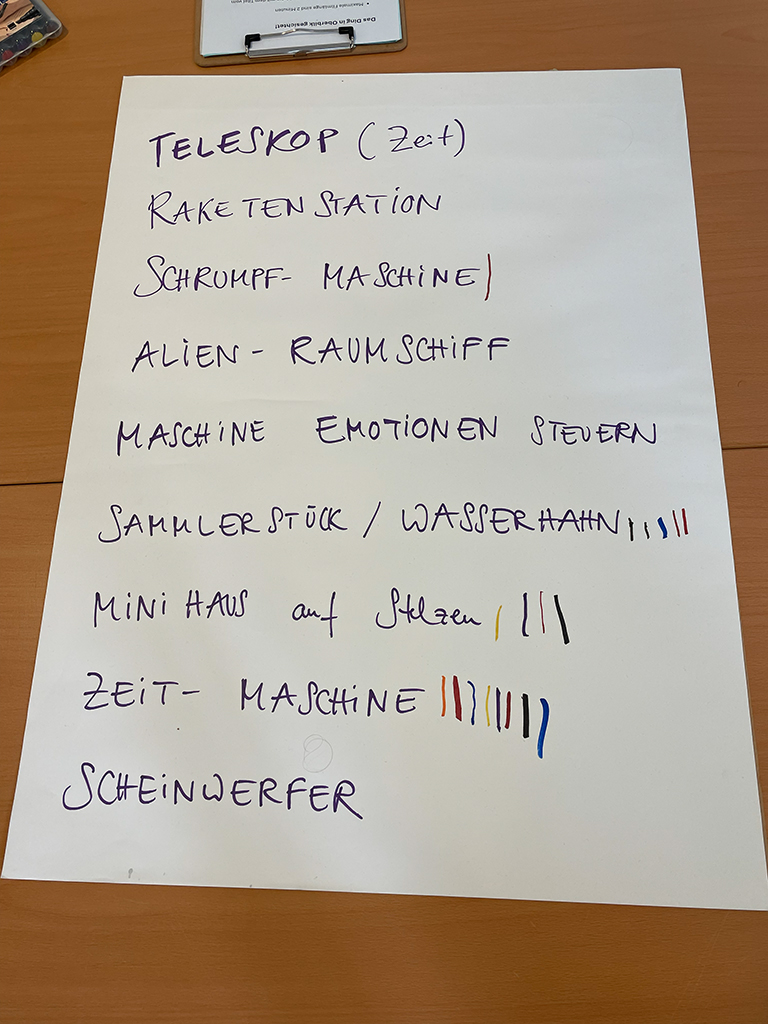 Das Ding in Oberbilk gesichtet!
TELESKOP (Zeit)
RAKETENSTATION
SCHRUMPF- MASCHINE
ALIEN - RAUMSCHIFF
MASCHINE EMOTIONEN STEUERN
SAMMLERSTÜCK / WASSERHAHN
MINI HAUS auf Stelzen
ZEIT- MASCHINE
SCHEINWERFER